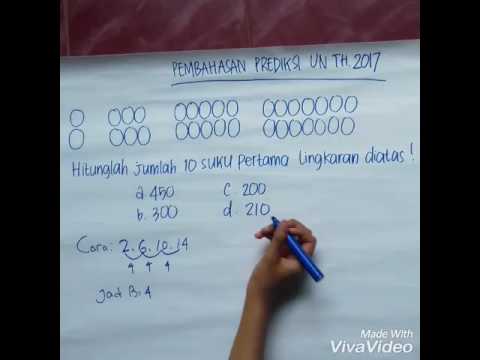 PEMBAHASAN PREDIKSI UN TH. 2017
Hitunglah jumlah 10 suku pertama lingkaran diatas !
a. 450 c. 200
b. 300 d. 210
Cara: 2, 6, 10, 14
4 4 4
Jadi B: 4
Made With
VivaVideo